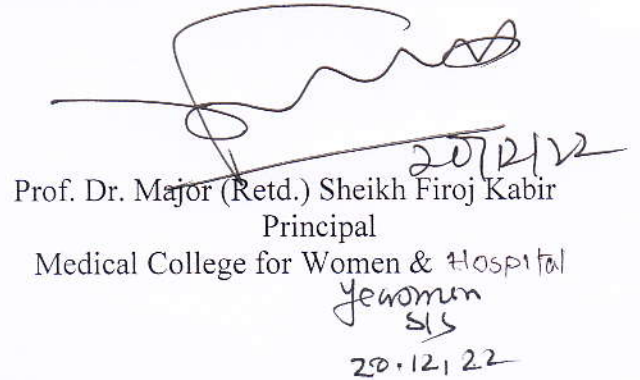 20/12/22
Prof. Dr. Major (Retd.) Sheikh Firoj Kabir
Principal
Medical College for Women & Hospital
20.12,22